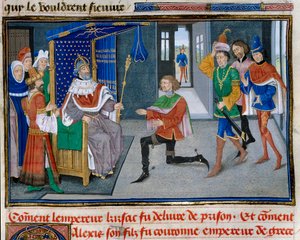 qui le vouldrent sieuure
Coment lempereur kirsac fu deliure de prison. Et coment
Alexis son filz fu couronne empereur de grece